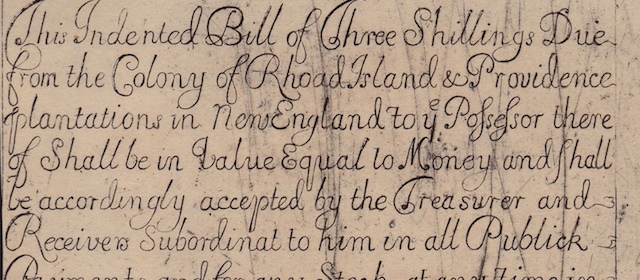 This Indented Bill of Three Shillings Due
from the Colony of Rhoad Island & Providence
plantations in New England to ye Possessor there
of Shall be in Value Equal to Money and shall
be accordingly accepted by the Treasurer and
Receivers Subordinat to him in all Publick
Paiments and for any Stock at any Time in